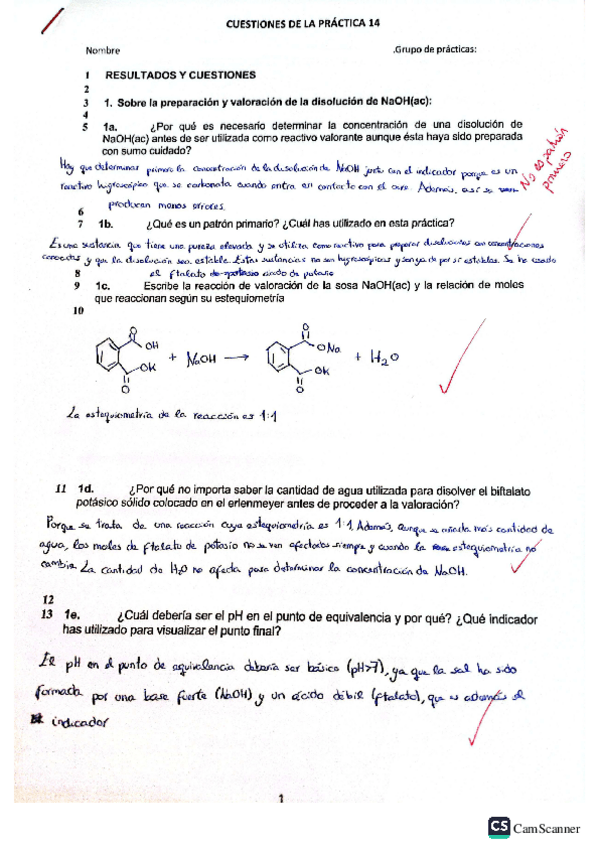 CUESTIONES DE LA PRÁCTICA 14
Nombre .Grupo de prácticas:
1 RESULTADOS Y CUESTIONES
2
3 1. Sobre la preparación y valoración de la disolución de NaOH(ac):
4
5 1a. ¿Por qué es necesario determinar la concentración de una disolución de
NaOH(ac) antes de ser utilizada como reactivo valorante aunque ésta haya sido preparada
con sumo cuidado?
Hay que determinar primero la concentración de la disolución de NaOH junto con el indicador porque es un
reactivo higroscópico que se carbonata cuando entra en contacto con el aire. Además, así se ven
producen menos errores.
No es patrón
primario
6
7 1b. ¿Qué es un patrón primario? ¿Cuál has utilizado en esta práctica?
Es una sustancia que tiene una pureza elevada y se utiliza como reactivo para preparar disoluciones con concentraciones
conocidas y que la disolución sea estable. Estas sustancias no son higroscópicas y son ya de por sí estables. Se ha usado
8 el ftalato de potasio ácido de potasio
9 1c. Escribe la reacción de valoración de la sosa NaOH(ac) y la relación de moles
que reaccionan según su estequiometría
10
O OH OK O + NaOH → O ONa OK O + H2O
La estequiometría de la reacción es 1:1
11 1d. ¿Por qué no importa saber la cantidad de agua utilizada para disolver el biftalato
potásico sólido colocado en el erlenmeyer antes de proceder a la valoración?
Porque se trata de una reacción cuya estequiometría es 1:1. Además, aunque se añada más cantidad de
agua, los moles de ftalato de potasio no se ven afectados siempre y cuando la estequiometría no
cambie. La cantidad de H2O no afecta para determinar la concentración de NaOH.
12
13 1e. ¿Cuál debería ser el pH en el punto de equivalencia y por qué? ¿Qué indicador
has utilizado para visualizar el punto final?
El pH en el punto de equivalencia debería ser básico (pH>7), ya que la sal ha sido
formada por una base fuerte (NaOH) y un ácido débil (ftalato), que es además el
indicador
1
CS CamScanner